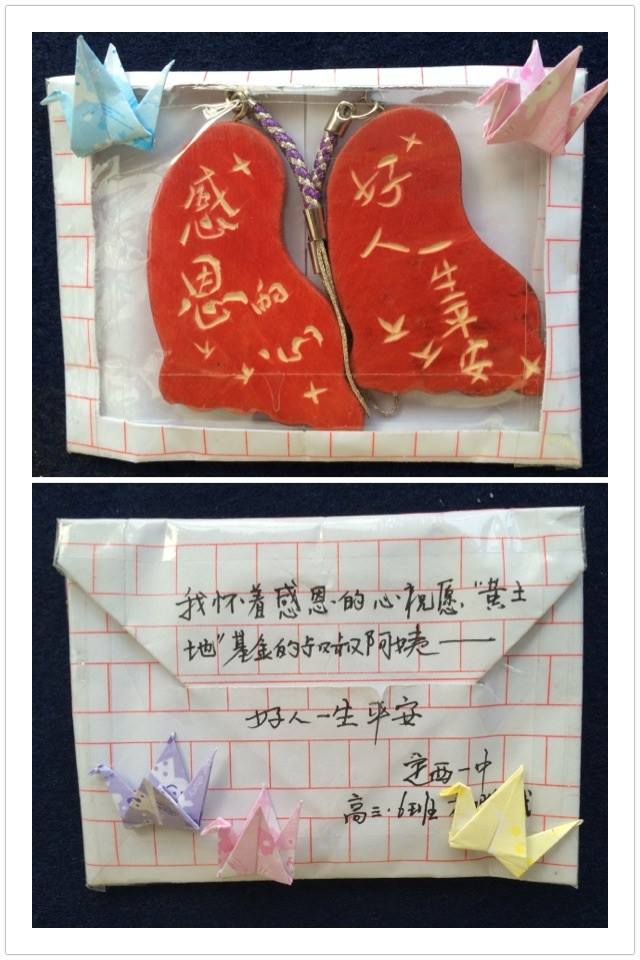 感恩的心
好人一生平安
我怀着感恩的心祝愿"黄土
地"基金的叔叔阿姨——
好人一生平安
定西一中
高三·6班